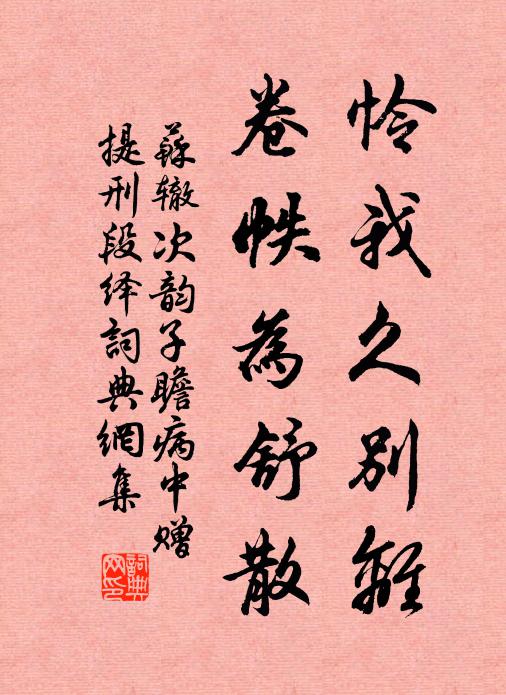 怜我久别離
卷帙為舒散
蘇辙次韵子瞻病中赠
提刑段绎詞典網集
詞典
网印